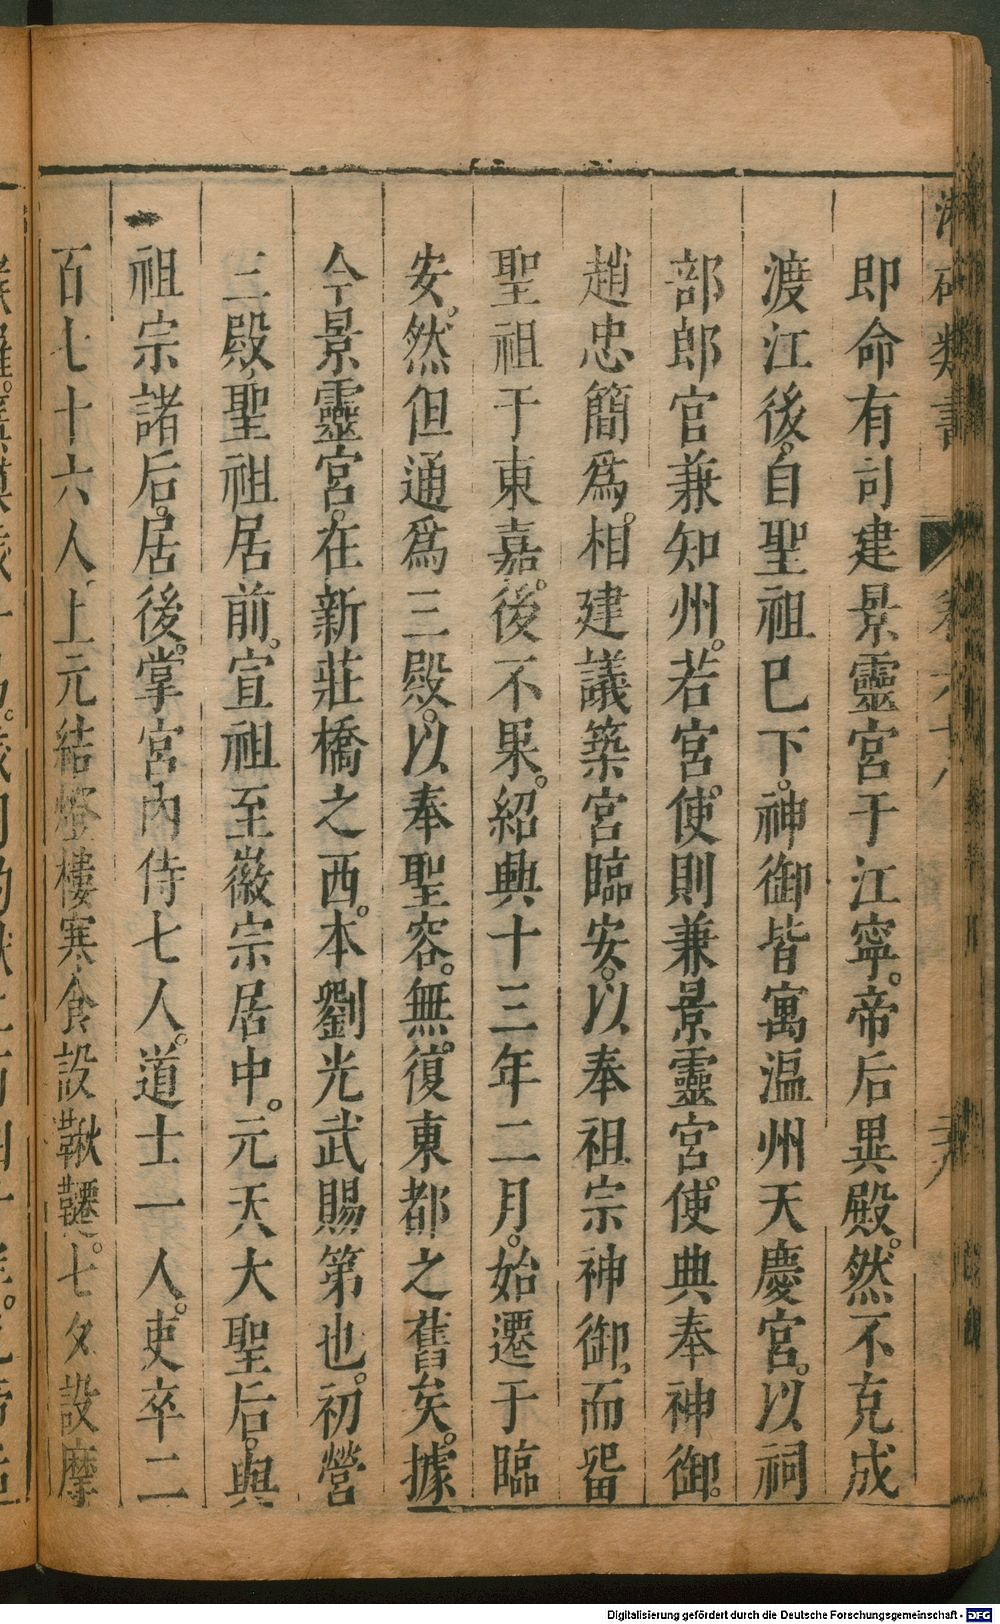 即命有司建景靈宮于江寧。帝后異殿。然不克成
渡江後。自聖祖巳下。神御皆寓溫州天慶宮。以祠
部郎官兼知州。若宮使則兼景靈宮使典奉神御。
趙忠簡爲。相建議築宮臨安。以奉祖宗神御。而畱
聖祖于東嘉。後不果。紹興十三年二月。始遷于臨
安。然但通爲三殿。以奉聖容。無。復東都之舊矣。據
今景靈宮。在新莊橋之西。本劉光武賜第也。初營
三殿。聖祖居前。宣祖至徽宗居中。元天大聖后。與
祖宗諸后。居後。掌宮內侍七人。道士一人。吏卒二
百七十六人。上元結燈樓寒食設鞦韆。七夕設摩
類書
Digitalisierung gefördert durch die Deutsche Forschungsgemeinschaft - DFG